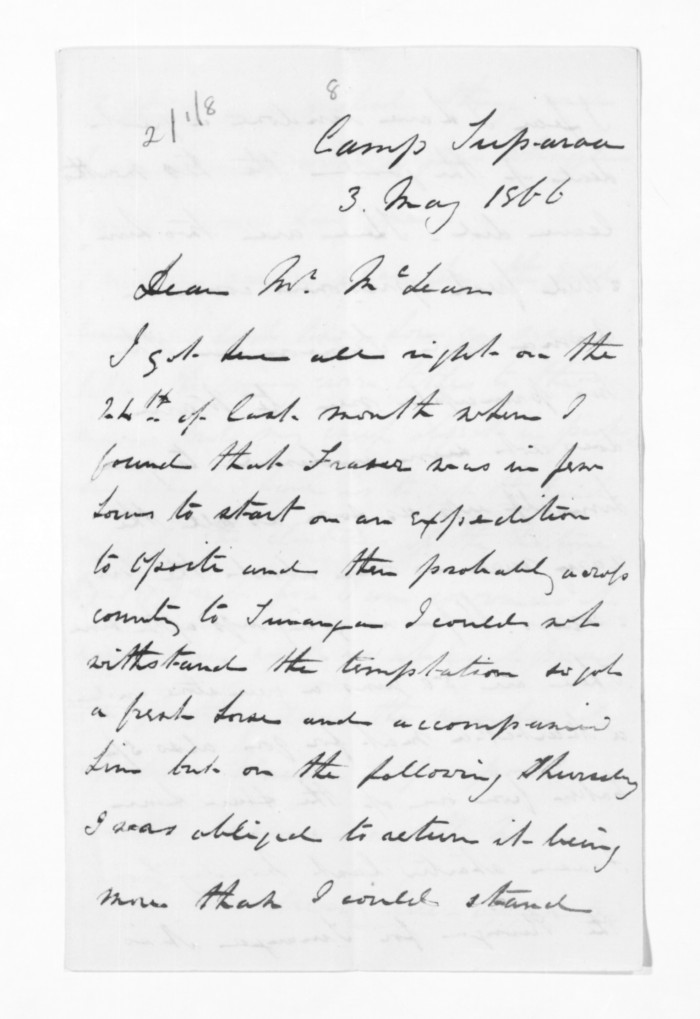 2/1/8
8
Camp Tuparoa
3. May 1866
Dear Mr. McLean
I got here all right on the
24th of last month when I
found that Fraser was in few
hours to start on an expedition
to Oporte and then probably across
country to Turanga I could not
withstand the temptation so got
a fresh horse and accompanied
him but on the following Thursday
I was obliged to return it being
more than I could stand